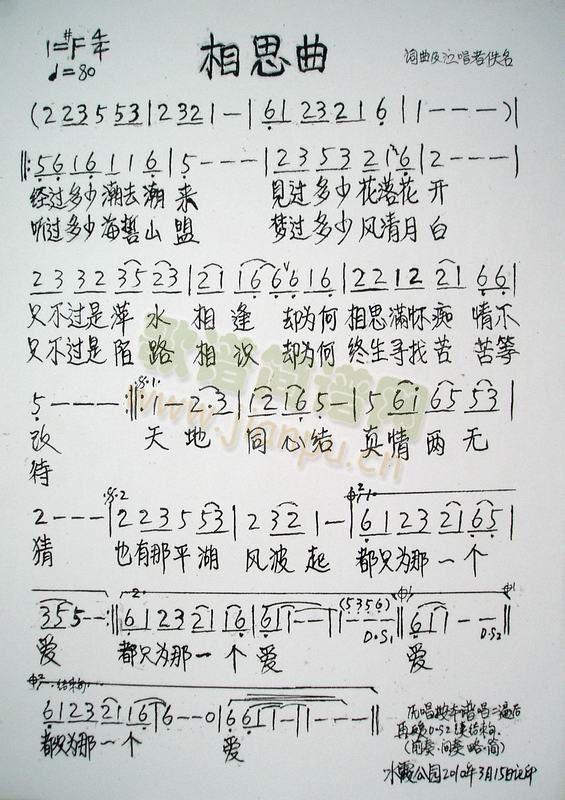 1=#F 4/4
♩=80
相思曲
词曲及泣唱者佚名
(2 2 3 5 5 3 | 2 3 2 1 - | 6 1 2 3 2 1 6 | 1 - - - )|
‖: 5 6 1 6 1 1 6 | 5 - - - | 2 3 5 3 2 1 6 | 2 - - - |
经过多少潮去潮来 见过多少花落花开
听过多少海誓山盟 梦过多少风清月白
2 3 3 2 3 5 2 3 | 2 1 1 6 6 6 1 6 | 2 2 1 2 2 1 6 6 |
只不过是萍水相逢 却为何相思满怀痴情不
只不过是陌路相识 却为何终生寻找苦苦等
5 - - - :‖ 1 - 2 3 | 1 2 1 6 5 - | 5 6 1 6 5 5 3 |
改 天地同心结 真情两无
待
2 - - - | 2 2 3 5 5 3 | 2 3 2 1 - | 6 1 2 3 2 1 6 5 |
猜 也有那平湖风波起 都只为那一个
3 5 5 - - :‖ 6 1 2 3 2 1 1 6 | 6 1 1 - - | 1 - - - (5 3 5 6) ‖ 6 1 1 - - ‖
D.S1 D.S2
爱 都只为那一个爱 爱
结束句
6 1 2 3 2 1 1 6 | 6 - - 0 | 6 6 1 1 - | 1 - - - ‖
都只为那一个 爱
(前奏·间奏略·简)
水霞公园2010年3月15日记印
www.jianpu.cn